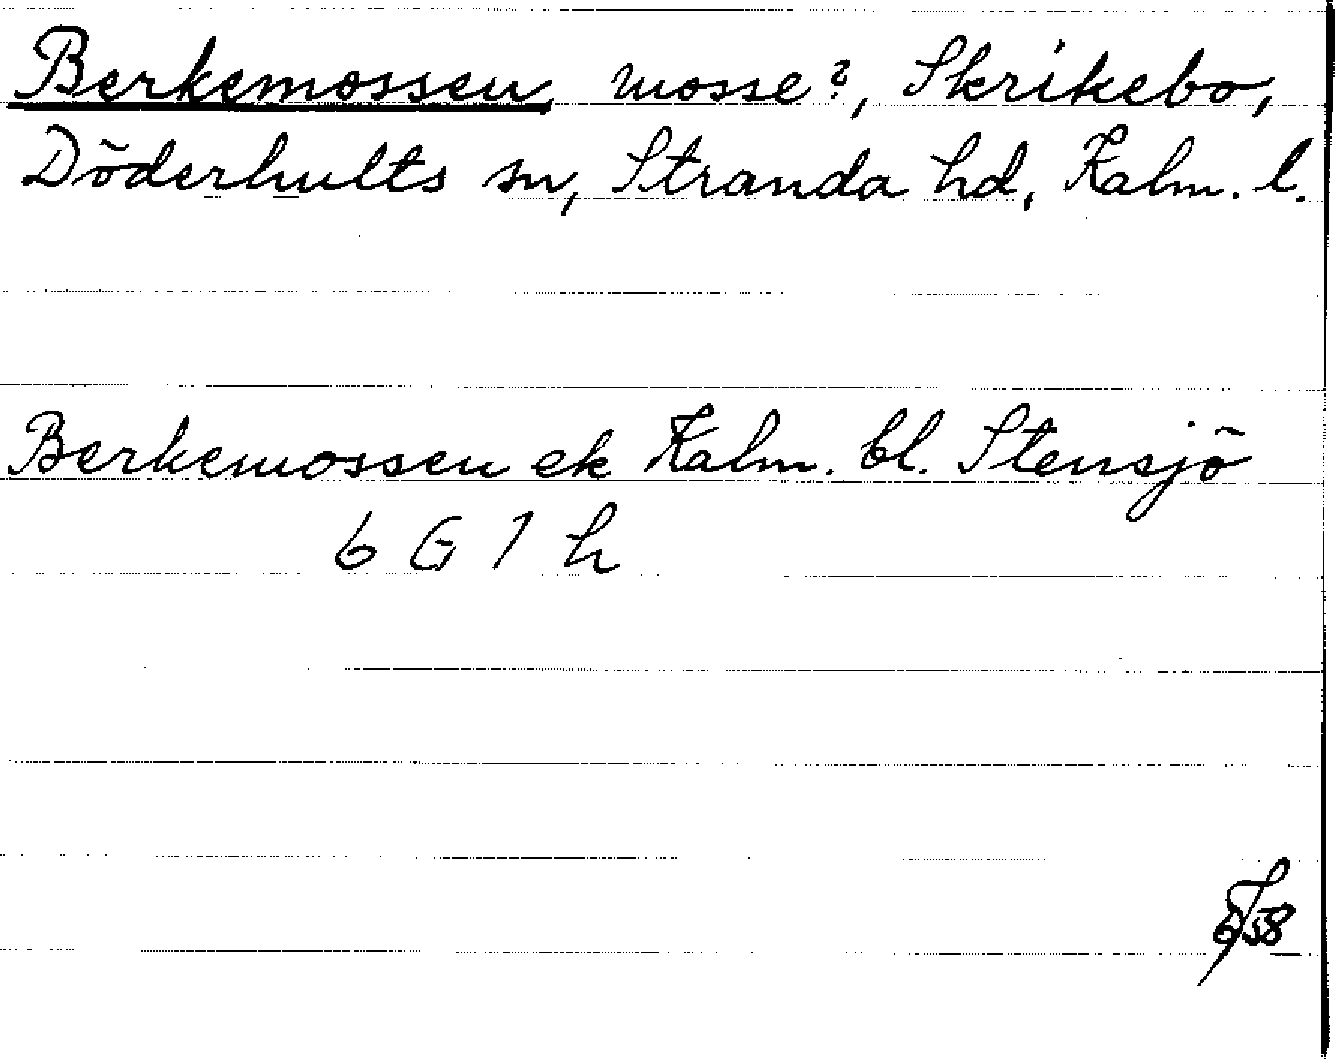 Berkemossen, mosse?, Skrikebo,
Döderhults sn, Stranda hd, Kalm. l.
Berkemossen ek Kalm. bl. Stensjö
6 G 1 h